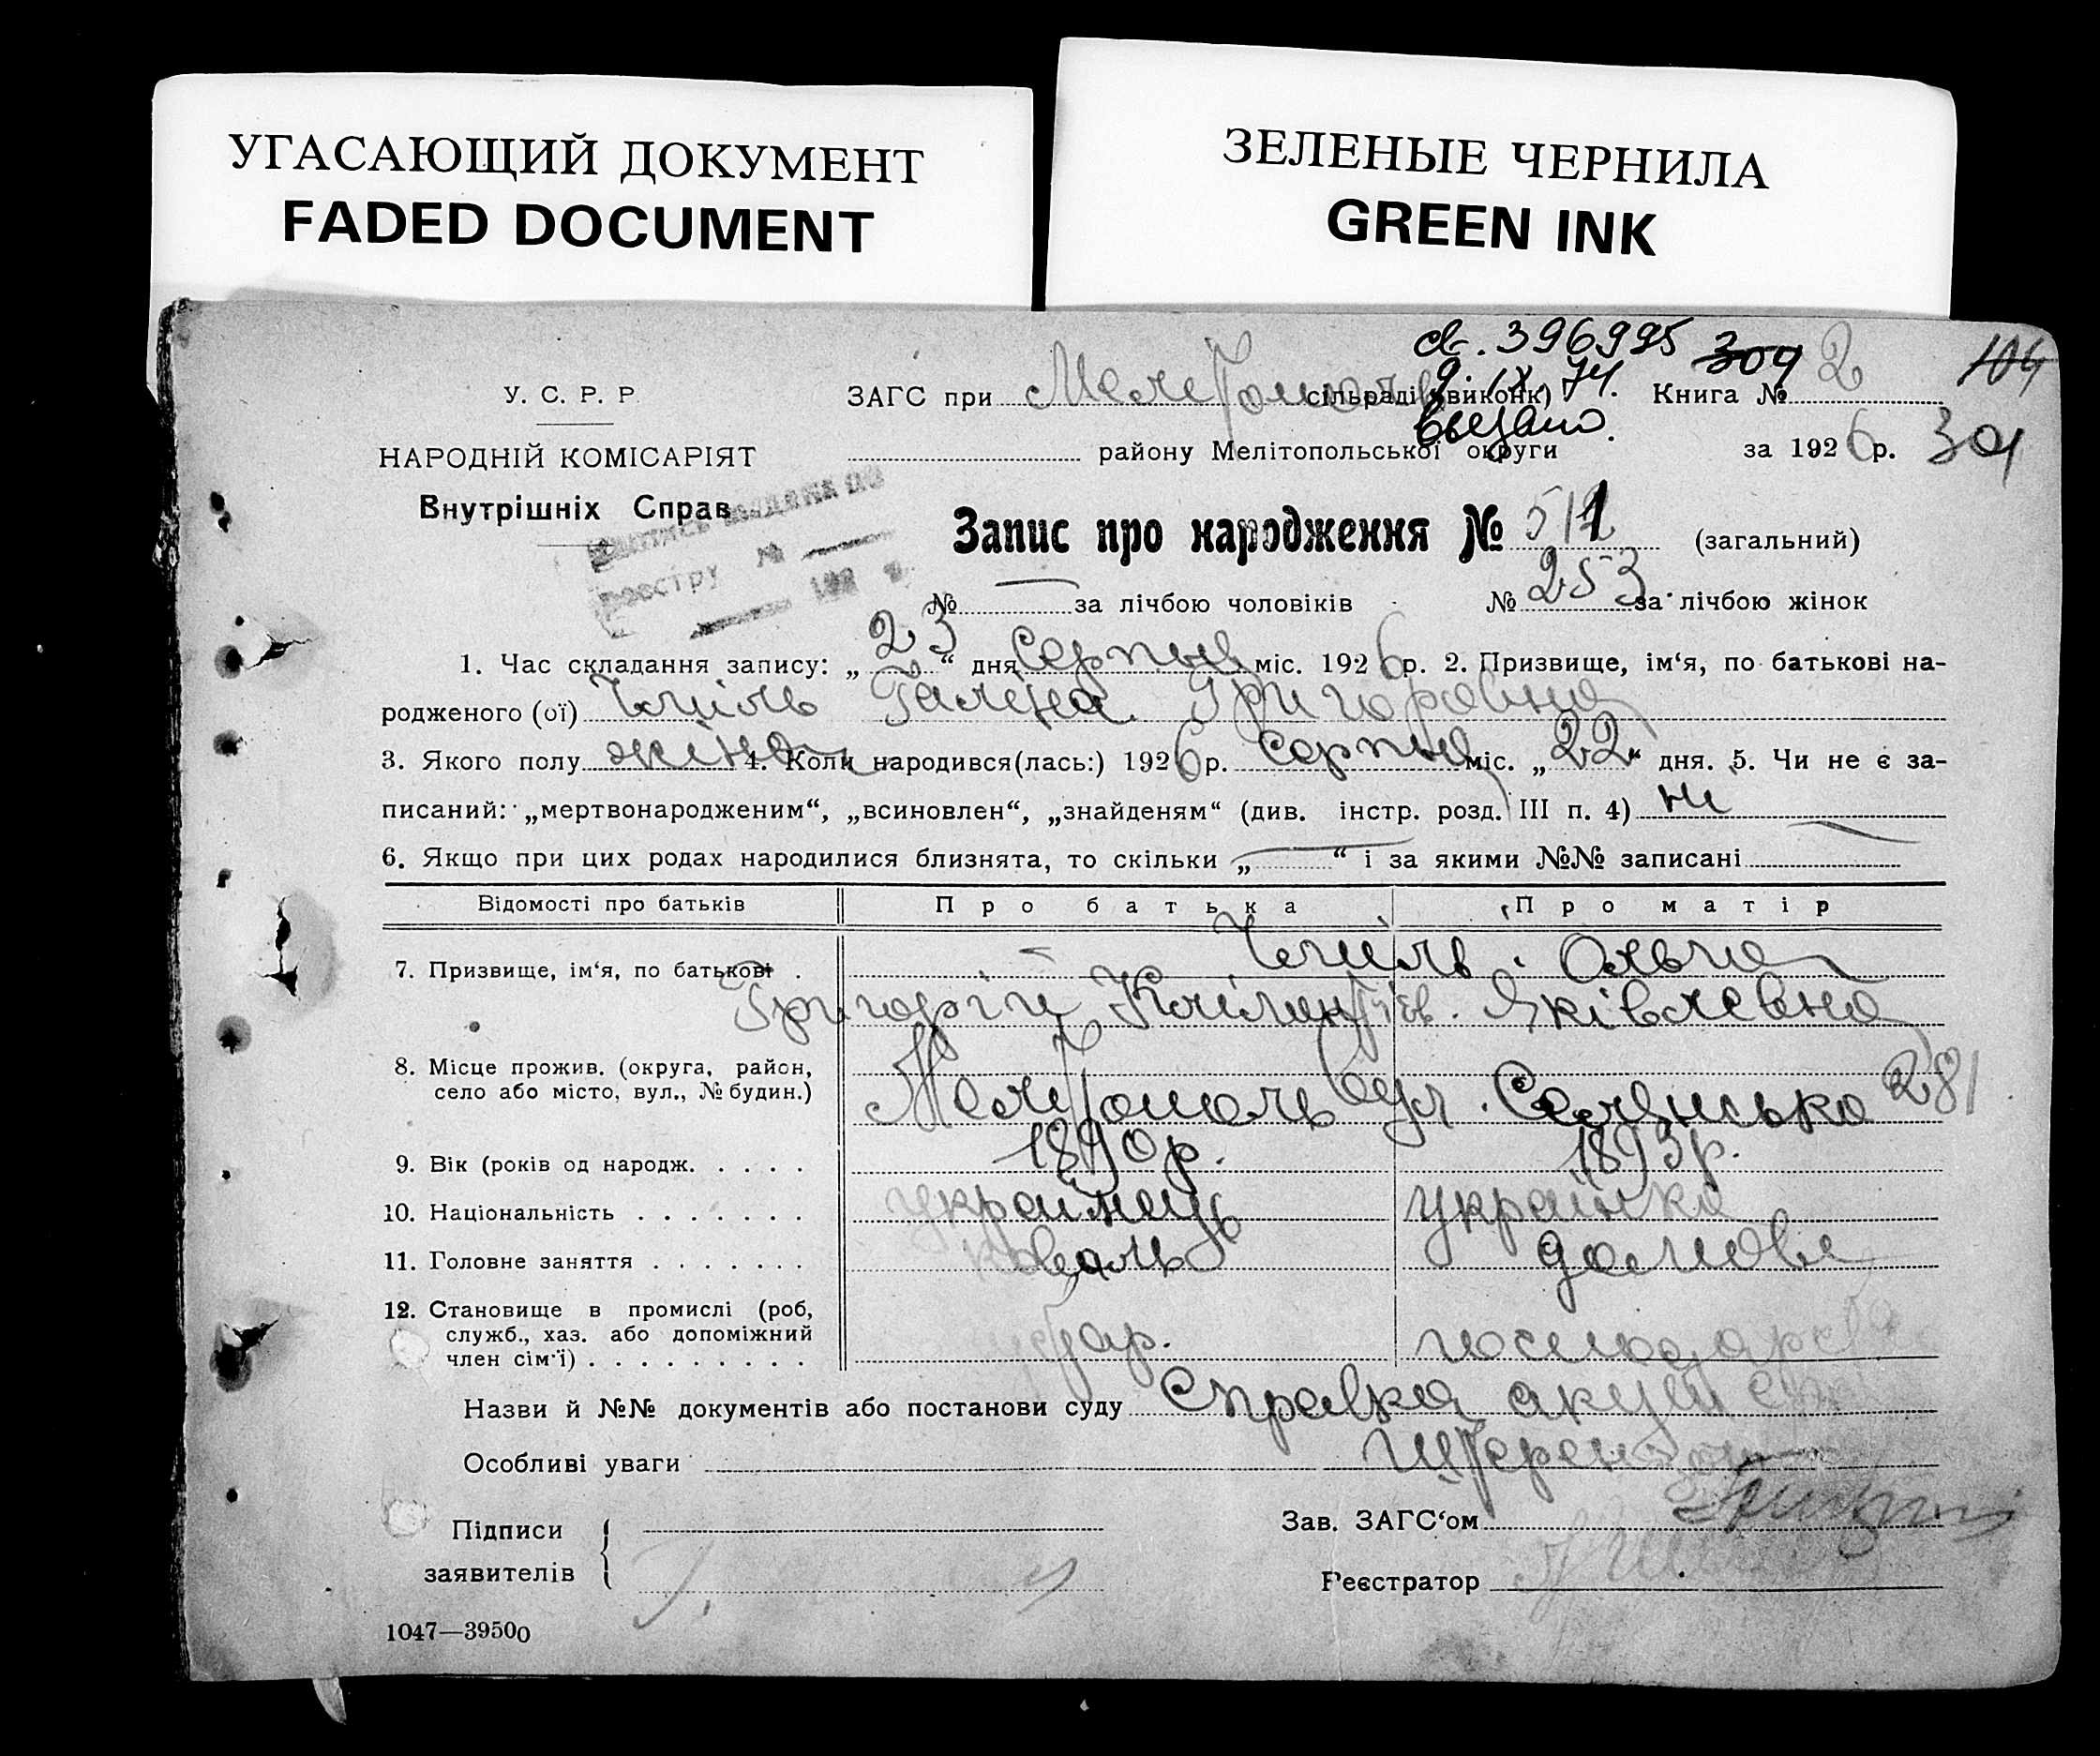 УГАСАЮЩИЙ ДОКУМЕНТ
FADED DOCUMENT
ЗЕЛЕНЫЕ ЧЕРНИЛА
GREEN INK
304 2 104
У. С. Р. Р.
ЗАГС при сільраді (виконк) Книга №
396995
9. IX. 74.
выдано.
НАРОДНІЙ КОМІСАРІЯТ
району Мелітопольської округи за 1926 р. 304
Внутрішніх Справ
реєстру № 192 р.
Запис про народження № 511 (загальний)
№ — за лічбою чоловіків № 253 за лічбою жінок
1. Час складання запису: „23“ дня серпня міс. 1926 р. 2. Призвище, ім‘я, по батькові на-
родженого (ої) Галіна Григоровна
3. Якого полу жіноч 4. Коли народився(лась:) 1926 р. серпня міс. „22“ дня. 5. Чи не є за-
писаний: „мертвонародженим“, „всиновлен“, „знайденям“ (див. інстр. розд. III п. 4) ні
6. Якщо при цих родах народилися близнята, то скільки „ — “ і за якими №№ записані —
Відомості про батьків Про батька Про матір
7. Призвище, ім‘я, по батькові . Ольга
Григорій Кліментіев. Яківлевна
8. Місце прожив. (округа, район,
село або місто, вул., № будин.) Мелітополь вул. Селянська 281
9. Вік (років од народж. . . . . 1890 р. 1893 р.
10. Національність . . . . . . . українець українка
11. Головне заняття . . . . . . . коваль домове
12. Становище в промислі (роб,
служб., хаз. або допоміжний
член сім‘ї) . . . . . . . . . господарство
Назви й №№ документів або постанови суду Справка акушерки
Особливі уваги
Підписи
заявителів
Зав. ЗАГС‘ом
Реєстратор
1047—39500